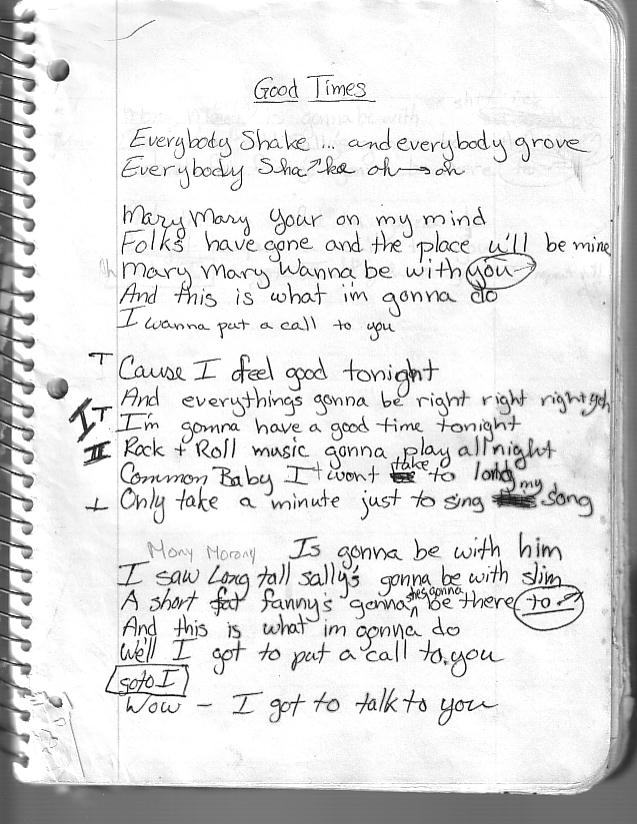 Good Times
Everybody Shake ... and everybody grove
Everybody Sha ke oh → oh
Mary Mary your on my mind
Folks have gone and the place w'll be mine
Oh Mary Mary Wanna be with you
And this is what i'm gonna do
I wanna put a call to you
Cause I feel good tonight
And everythings gonna be right right right yeh
I I'm gonna have a good time tonight
II Rock + Roll music gonna play all night
Common Baby It wont take to long
Only take a minute just to sing my song
Mony Morony Is gonna be with him
I saw Long tall sally's gonna be with slim
A short fat fanny's gonna shes gonna be there to
And this is what im gonna do
We'll I got to put a call to you
goto I
Wow - I got to talk to you